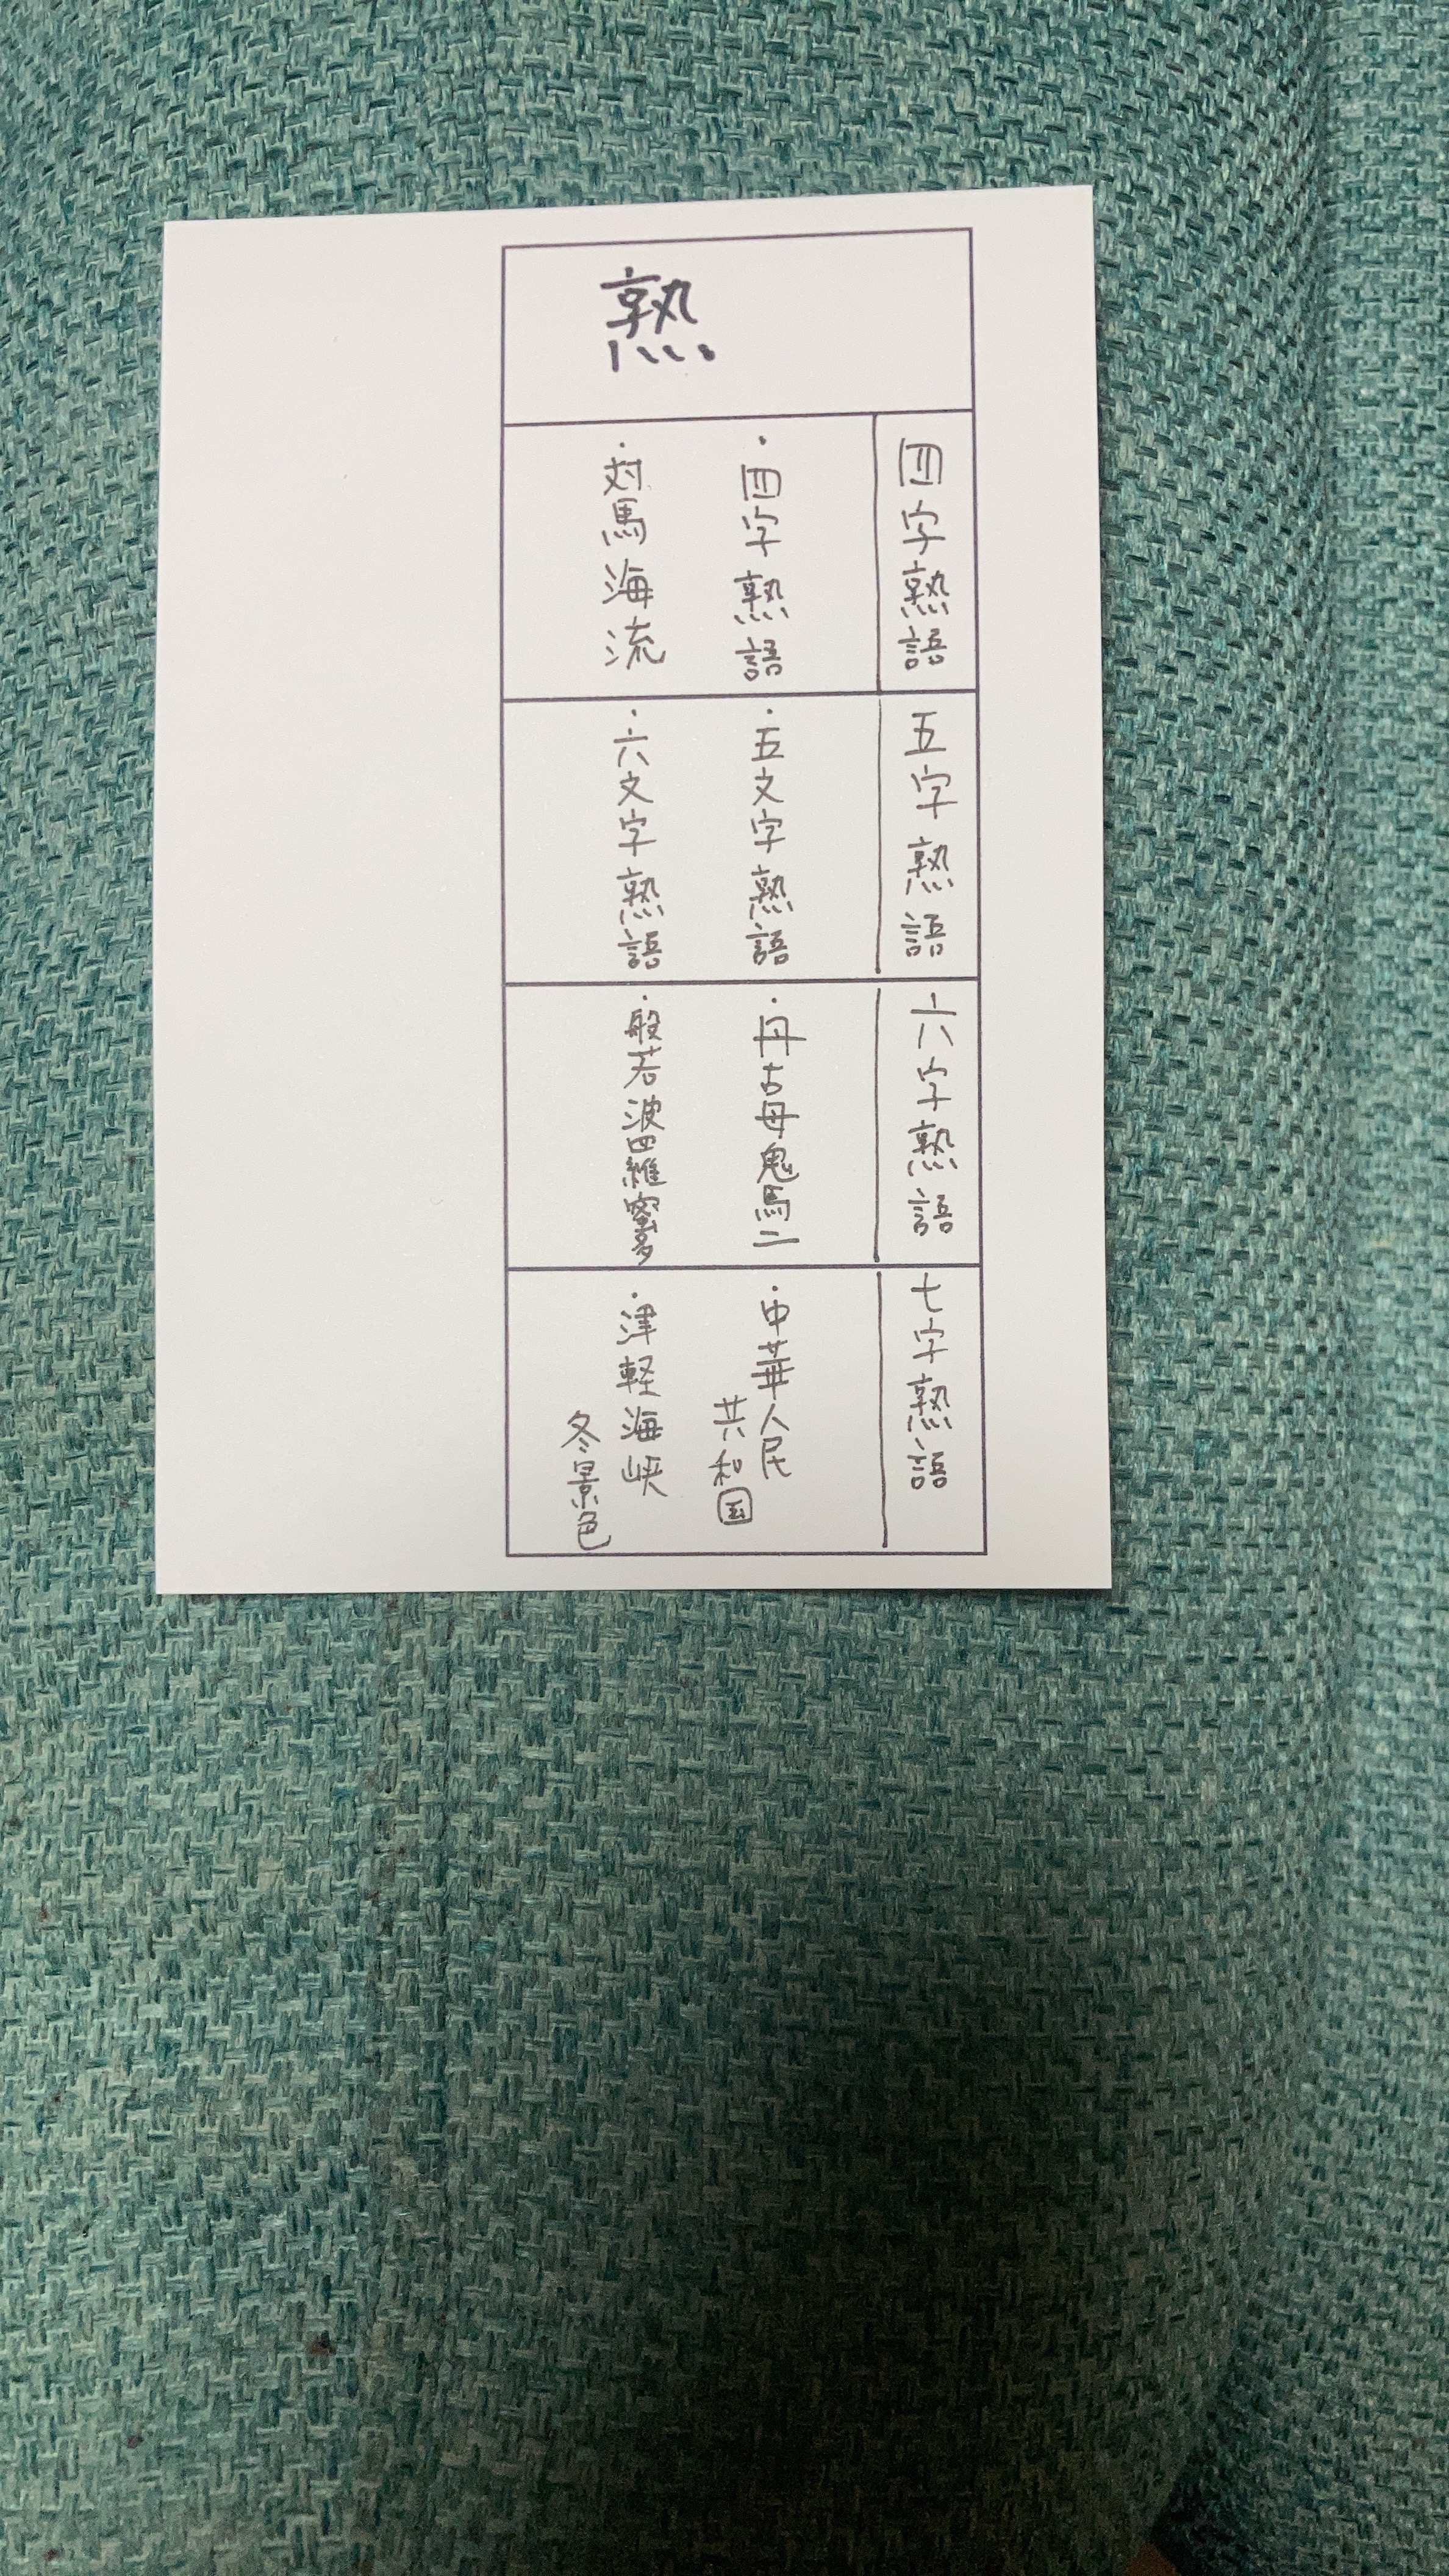 熟
四字熟語
・四字熟語
・対馬海流
五字熟語
・五文字熟語
・六文字熟語
六字熟語
・丹古母鬼馬二
・般若波羅蜜多
七字熟語
・中華人民
共和国
・津軽海峡
冬景色